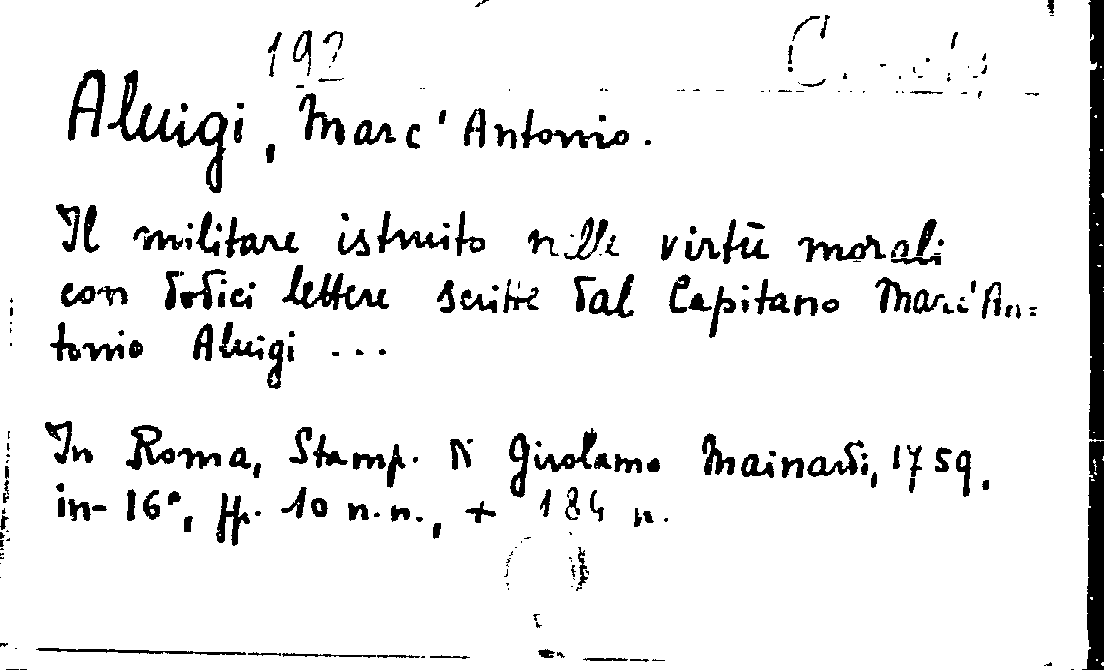 192
Aluigi, Marc' Antonio.
Il militare istruito nelle virtù morali
con dodici lettere scritte dal Capitano Marc'An=
tonio Aluigi ...
In Roma, Stamp. di Girolamo Mainardi, 1759.
in-16°, pp. 10 n.n., + 184 n.